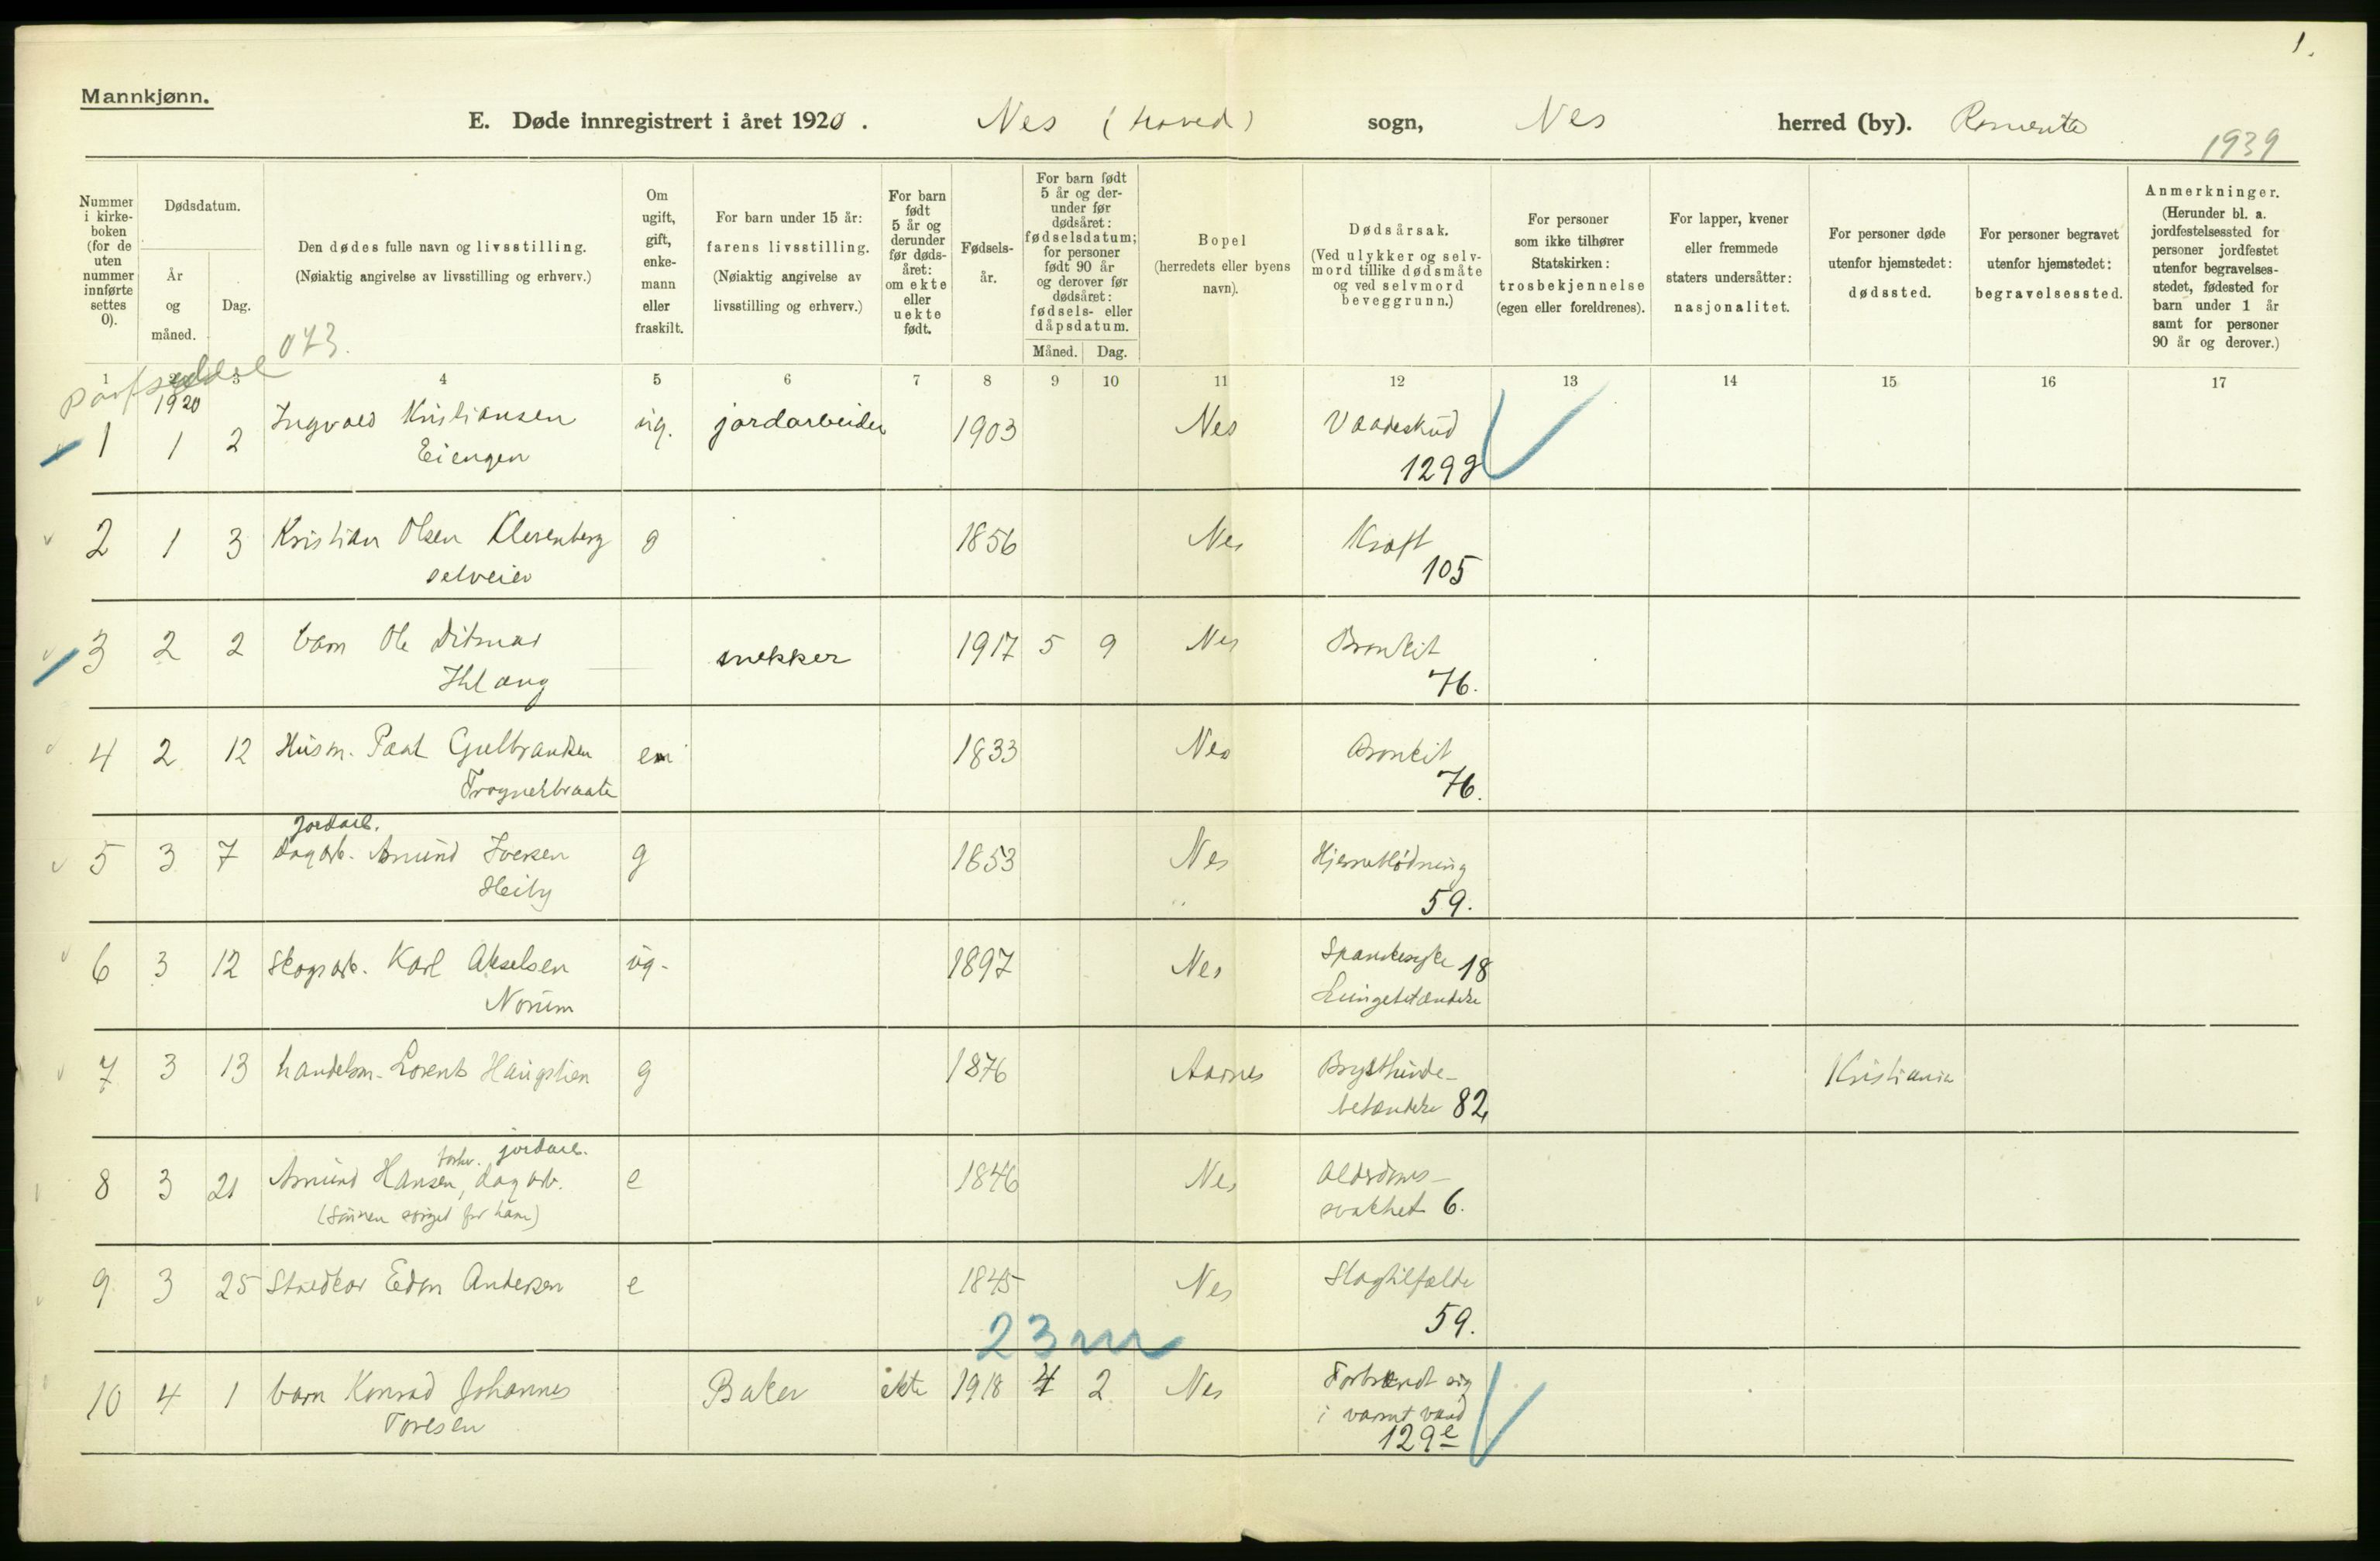 1.
Mannkjønn.
E. Døde innregistrert i året 1920. Nes (hoved) sogn, Nes herred (by). Romerike
1939
Nummer i kirke-boken (for de uten nummer innførte settes 0).
Dødsdatum.
År og måned.
Dag.
Den dødes fulle navn og livsstilling.
(Nøiaktig angivelse av livsstilling og erhverv.)
Om ugift, gift, enke-mann eller fraskilt.
For barn under 15 år: farens livsstilling.
(Nøiaktig angivelse av livsstilling og erhverv.)
For barn født 5 år og derunder før døds-året: om ekte eller uekte født.
Fødsels-år.
For barn født 5 år og der-under før dødsåret: fødselsdatum; for personer født 90 år og derover før dødsåret: fødsels- eller dåpsdatum.
Måned. Dag.
Bopel (herredets eller byens navn).
Dødsårsak.
(Ved ulykker og selv-mord tillike dødsmåte og ved selvmord beveggrunn.)
For personer som ikke tilhører Statskirken: trosbekjennelse (egen eller foreldrenes).
For lapper, kvener eller fremmede staters undersåtter: nasjonalitet.
For personer døde utenfor hjemstedet: dødssted.
For personer begravet utenfor hjemstedet: begravelsessted.
Anmerkninger.
(Herunder bl. a. jordfestelsessted for personer jordfestet utenfor begravelses-stedet, fødested for barn under 1 år samt for personer 90 år og derover.)
073.
1 2 3 4 5 6 7 8 9 10 11 12 13 14 15 16 17
1920
1 1 2 Ingvald Kristiansen ug. jordarbeider 1903 Nes Vaadeskud
Eiengen 129g
2 1 3 Kristian Olsen Klevenberg g 1856 Nes Kræft
selveier 105
3 2 2 barn Ole Ditmar snekker 1917 5 9 Nes Bronkit
Ihlang 76.
4 2 12 Husm. Paal Gulbrandsen em 1833 Nes Bronkit
Trognerbraate 76.
jordarb.
5 3 7 dagarb. Amund Iversen g 1853 Nes Hjerneblødning
Heiby 59.
6 3 12 Skogsarb. Karl Akselsen ug. 1897 Nes Spanskesyke 18
Norum Lungebetændelse
7 3 13 handelsm. Lorents Haugstien g 1876 Aarnes Brysthinde- Kristiania
betændelse 82
forhv. jordarb.
8 3 21 Amund Hansen, dagarb. e 1846 Nes Alderdoms-
(Sønnen sørget for ham) svakhet 6.
9 3 25 Smedkar Edvn Andersen e 1845 Nes Slagtilfælde
23 m 59.
10 4 1 barn Konrad Johannes Baker ekte 1918 4 2 Nes Forbrændt sig
Toresen i varmt vand
129e